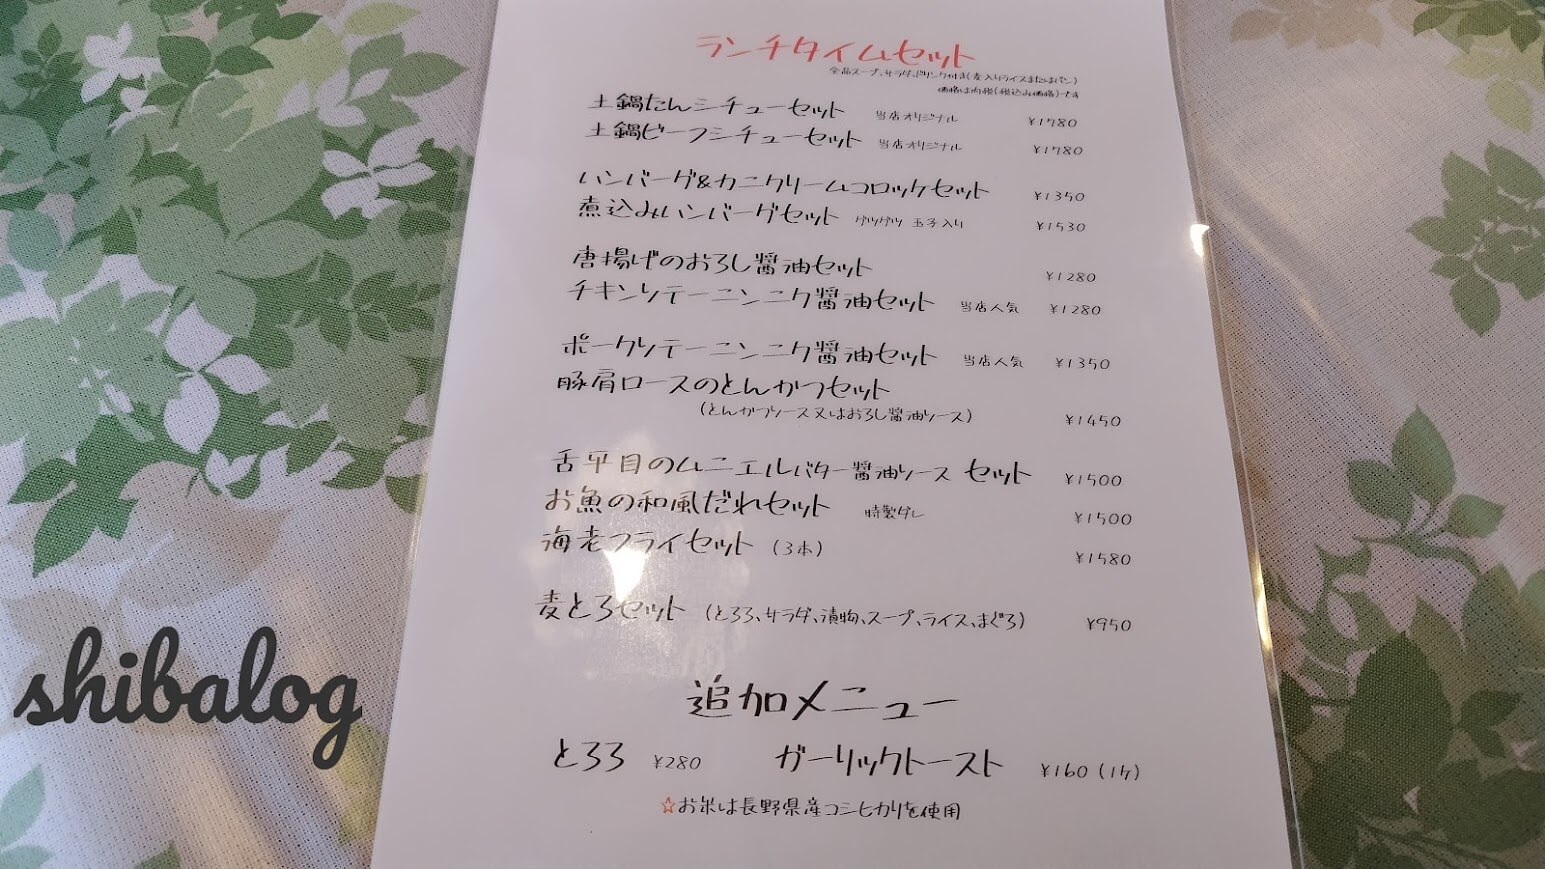 ランチタイムセット
全品スープ、サラダ、ドリンク付き(麦入りライスまたはパン)
価格は内税(税込み価格)です
土鍋たんシチューセット 当店オリジナル ¥1780
土鍋ビーフシチューセット 当店オリジナル ¥1780
ハンバーグ&カニクリームコロッケセット ¥1350
煮込みハンバーグセット グツグツ 玉子入り ¥1530
唐揚げのおろし醤油セット ¥1280
チキンソテーニンニク醤油セット 当店人気 ¥1280
ポークソテーニンニク醤油セット 当店人気 ¥1350
豚肩ロースのとんかつセット
(とんかつソース又はおろし醤油ソース) ¥1450
舌平目のムニエルバター醤油ソース セット ¥1500
お魚の和風だれセット 特製ダレ ¥1500
海老フライセット (3本) ¥1580
麦とろセット (とろろ、サラダ、漬物、スープ、ライス、まぐろ) ¥950
追加メニュー
とろろ ¥280 ガーリックトースト ¥160 (1ヶ)
☆お米は長野県産コシヒカリを使用
shibalog